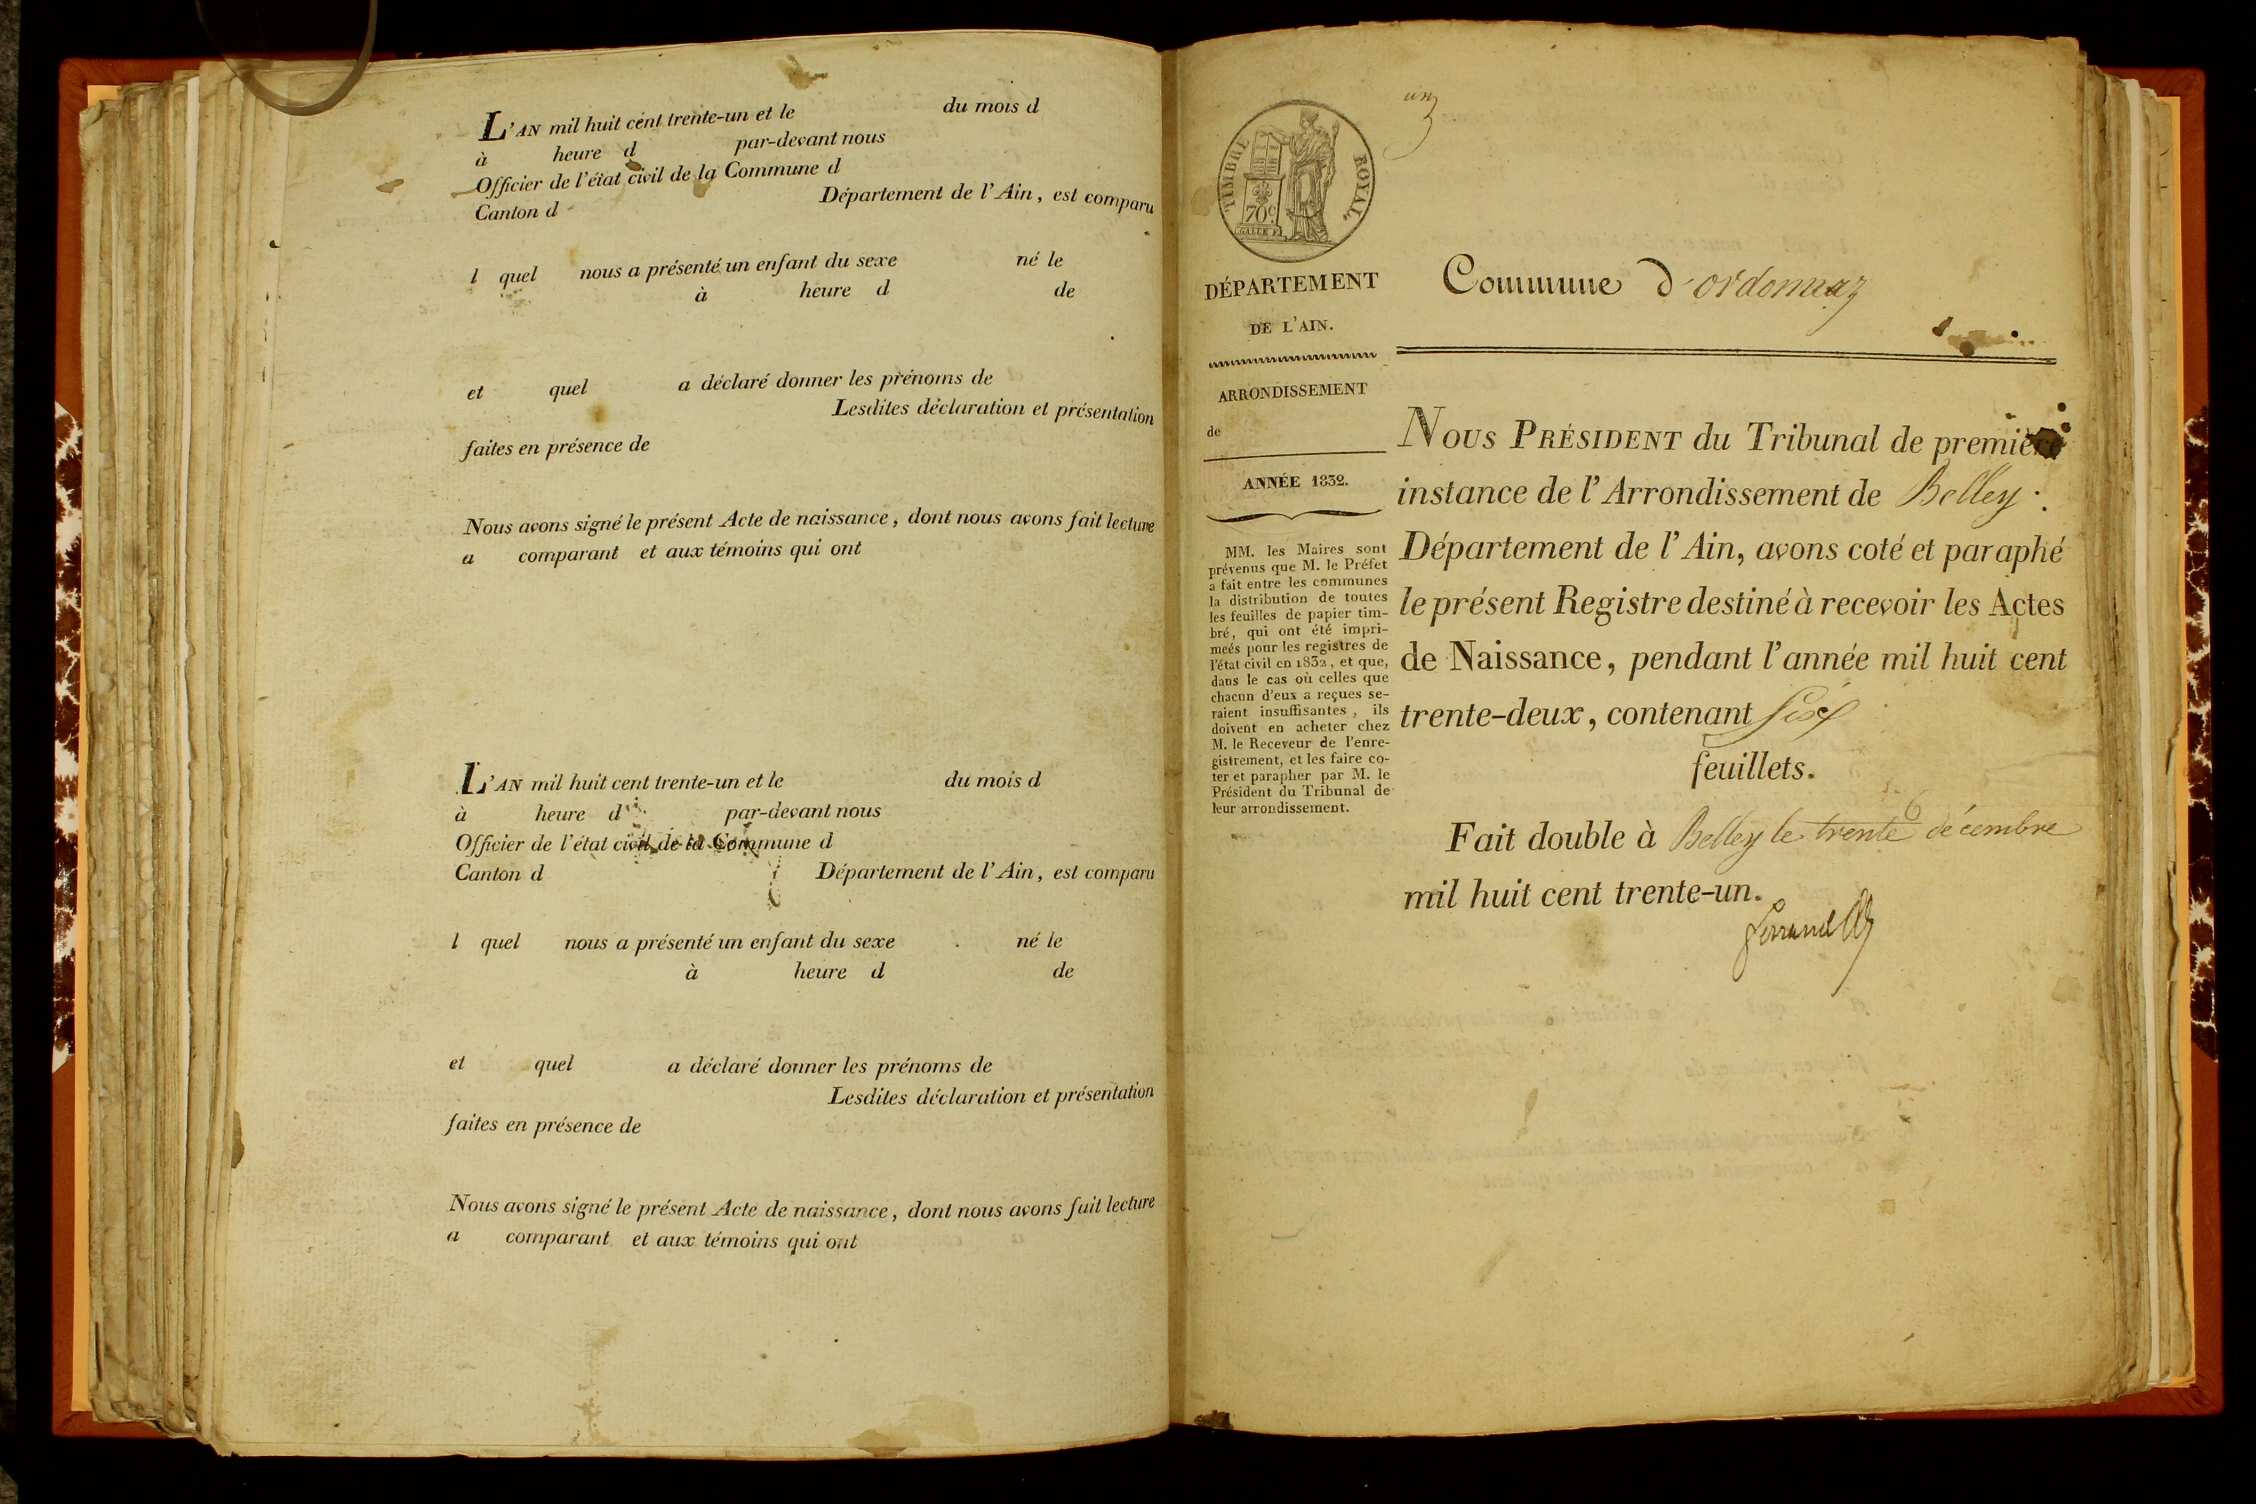 L'AN mil huit cent trente-un et le du mois d
à heure d par-devant nous
Officier de l'état civil de la Commune d
Canton d Département de l'Ain, est comparu
l quel nous a présenté un enfant du sexe né le
à heure d de
et quel a déclaré donner les prénoms de
Lesdites déclaration et présentation
faites en présence de
Nous avons signé le présent Acte de naissance, dont nous avons fait lecture
a comparant et aux témoins qui ont
L'AN mil huit cent trente-un et le du mois d
à heure d par-devant nous
Officier de l'état civil de la Commune d
Canton d Département de l'Ain, est comparu
l quel nous a présenté un enfant du sexe né le
à heure d de
et quel a déclaré donner les prénoms de
Lesdites déclaration et présentation
faites en présence de
Nous avons signé le présent Acte de naissance, dont nous avons fait lecture
a comparant et aux témoins qui ont
un
TIMBRE ROYAL
70 c.
GALLE F.
DÉPARTEMENT
DE L'AIN.
ARRONDISSEMENT
de
ANNÉE 1832.
MM. les Maires sont
prévenus que M. le Préfet
a fait entre les communes
la distribution de toutes
les feuilles de papier tim-
bré, qui ont été impri-
meés pour les registres de
l'état civil en 1832, et que,
dans le cas où celles que
chacun d'eux a reçues se-
raient insuffisantes, ils
doivent en acheter chez
M. le Receveur de l'enre-
gistrement, et les faire co-
ter et parapher par M. le
Président du Tribunal de
leur arrondissement.
Commune d'ordonnaz
NOUS PRÉSIDENT du Tribunal de première
instance de l'Arrondissement de Belley.
Département de l'Ain, avons coté et paraphé
le présent Registre destiné à recevoir les Actes
de Naissance, pendant l'année mil huit cent
trente-deux, contenant six
feuillets.
Fait double à Belley le trente décembre
mil huit cent trente-un.